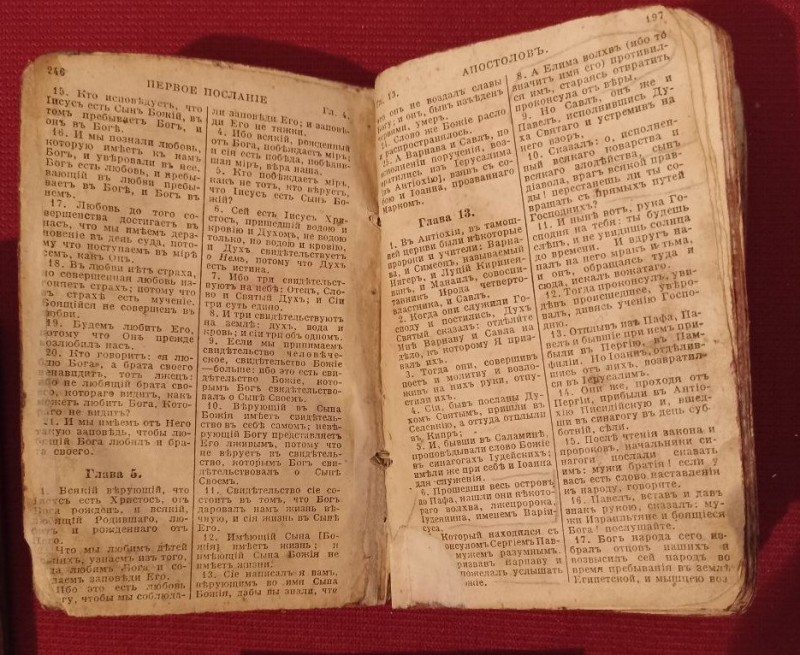 246
ПЕРВОЕ ПОСЛАНІЕ
Гл. 4.
15. Кто исповѣдуетъ, что
Іисусъ есть Сынъ Божій, въ
томъ пребываетъ Богъ, и
онъ въ Богѣ.
16. И мы познали любовь,
которую имѣетъ къ намъ
Богъ, и увѣровали въ нее.
Богъ есть любовь, и пребы-
вающій въ любви пребы-
ваетъ въ Богѣ, и Богъ въ
немъ.
17. Любовь до того со-
вершенства достигаетъ въ
насъ, что мы имѣемъ дерз-
новеніе въ день суда, пото-
му что поступаемъ въ мірѣ
семъ, какъ Онъ.
18. Въ любви нѣтъ страха,
но совершенная любовь из-
гоняетъ страхъ; потому что
въ страхѣ есть мученіе.
Боящійся не совершенъ въ
любви.
19. Будемъ любить Его,
потому что Онъ прежде
возлюбилъ насъ.
20. Кто говоритъ: «я лю-
блю Бога», а брата своего
ненавидитъ, тотъ лжецъ:
ибо не любящій брата сво-
его, котораго видитъ, какъ
можетъ любить Бога, Кото-
раго не видитъ?
21. И мы имѣемъ отъ Него
такую заповѣдь, чтобы лю-
бящій Бога любилъ и бра-
та своего.
Глава 5.
Всякій вѣрующій, что
Іисусъ есть Христосъ, отъ
Бога рожденъ, и всякій,
любящій Родившаго, лю-
битъ и рожденнаго отъ
Него.
Что мы любимъ дѣтей
Божіихъ, узнаемъ изъ того,
когда любимъ Бога и со-
блюдаемъ заповѣди Его.
Ибо это есть любовь
къ Богу, чтобы мы соблюда-
ли заповѣди Его; и заповѣ-
ди Его не тяжки.
4. Ибо всякій, рожденный
отъ Бога, побѣждаетъ міръ;
и сія есть побѣда, побѣдив-
шая міръ, вѣра наша.
5. Кто побѣждаетъ міръ,
какъ не тотъ, кто вѣруетъ,
что Іисусъ есть Сынъ Бо-
жій?
6. Сей есть Іисусъ Хри-
стосъ, пришедшій водою и
кровію и Духомъ, не водою
только, но водою и кровію,
и Духъ свидѣтельствуетъ
о Немъ, потому что Духъ
есть истина.
7. Ибо три свидѣтельст-
вуютъ на небѣ: Отецъ, Сло-
во и Святый Духъ; и Сіи
три суть едино.
8. И три свидѣтельствуютъ
на землѣ: духъ, вода и
кровь; и сіи три объ одномъ.
9. Если мы принимаемъ
свидѣтельство человѣче-
ское, свидѣтельство Божіе
—больше: ибо это есть сви-
дѣтельство Божіе, кото-
рымъ Богъ свидѣтельство-
валъ о Сынѣ Своемъ.
10. Вѣрующій въ Сына
Божія имѣетъ свидѣтель-
ство въ себѣ самомъ; невѣ-
рующій Богу представляетъ
Его лживымъ, потому что
не вѣруетъ въ свидѣтель-
ство, которымъ Богъ сви-
дѣтельствовалъ о Сынѣ
Своемъ.
11. Свидѣтельство сіе со-
стоитъ въ томъ, что Богъ
даровалъ намъ жизнь вѣч-
ную, и сія жизнь въ Сынѣ
Его.
12. Имѣющій Сына (Бо-
жія) имѣетъ жизнь; не
имѣющій Сына Божія не
имѣетъ жизни.
13. Сіе написалъ я вамъ,
вѣрующимъ во имя Сына
Божія, дабы вы знали, что
Гл. 13.
АПОСТОЛОВЪ.
197
что онъ не воздалъ славы
Богу; и онъ, бывъ изъѣденъ
червями, умеръ.
24. Слово же Божіе расло
и распространялось.
25. А Варнава и Савлъ, по
исполненіи порученія, воз-
вратились изъ Іерусалима
въ Антіохію], взявъ съ со-
бою и Іоанна, прозваннаго
Маркомъ.
Глава 13.
1. Въ Антіохіи, въ тамош-
ней церкви были нѣкоторые
пророки и учители: Варна-
ва, и Симеонъ, называемый
Нигеръ, и Луцій Киринея-
нинъ, и Манаилъ, совоспи-
танникъ Ирода четверто-
властника, и Савлъ.
2. Когда они служили Го-
споду и постились, Духъ
Святый сказалъ: отдѣлите
Мнѣ Варнаву и Савла на
дѣло, къ которому Я призв-
алъ ихъ.
3. Тогда они, совершивъ
постъ и молитву и возло-
живъ на нихъ руки, отпу-
стили ихъ.
4. Сіи, бывъ посланы Ду-
хомъ Святымъ, пришли въ
Селевкію, а оттуда отплыли
въ Кипръ;
5. И, бывши въ Саламинѣ,
проповѣдывали слово Божіе
въ синагогахъ Іудейскихъ;
имѣли же при себѣ и Іоанна
для служенія.
6. Прошедши весь островъ
до Пафа, нашли они нѣкото-
раго волхва, лжепророка,
Іудеянина, именемъ Варіи-
суса,
Который находился съ
консуломъ Сергіемъ Пав-
мужемъ разумнымъ.
призвавъ Варнаву и
пожелалъ услышать
Божіе.
8. А Елима волхвъ (ибо то
значитъ имя его) противил-
ся имъ, стараясь отвратить
проконсула отъ вѣры.
9. Но Савлъ, онъ же и
Павелъ, исполнившись Ду-
ха Святаго и устремивъ на
него взоръ,
10. Сказалъ: о, исполнен-
ный всякаго коварства и
всякаго злодѣйства, сынъ
діавола, врагъ всякой прав-
ды! перестанешь ли ты со-
вращать съ прямыхъ путей
Господнихъ?
11. И нынѣ вотъ, рука Го-
сподня на тебя: ты будешь
слѣпъ, и не увидишь солнца
до времени. И вдругъ на-
палъ на него мракъ и тьма,
и онъ, обращаясь туда и
сюда, искалъ вожатаго.
12. Тогда проконсулъ, уви-
дѣвъ происшедшее, увѣро-
валъ, дивясь ученію Госпо-
дню.
13. Отплывъ изъ Пафа, Па-
велъ и бывшіе при немъ при-
были въ Пергію, въ Пам-
филіи. Но Іоаннъ, отдѣлив-
шись отъ нихъ, возвратил-
ся въ Іерусалимъ.
14. Они же, проходя отъ
Пергіи, прибыли въ Антіо-
хію Писидійскую и, вшед-
ши въ синагогу въ день суб-
ботній, сѣли.
15. Послѣ чтенія закона и
пророковъ, начальники си-
нагоги послали сказать
имъ: мужи братія! если у
васъ есть слово наставленія
къ народу, говорите.
16. Павелъ, вставъ и давъ
знакъ рукою, сказалъ: му-
жи Израильтяне и боящіеся
Бога! послушайте.
17. Богъ народа сего из-
бралъ отцовъ нашихъ и
возвысилъ сей народъ во
время пребыванія въ землѣ
Египетской, и мышцею воз